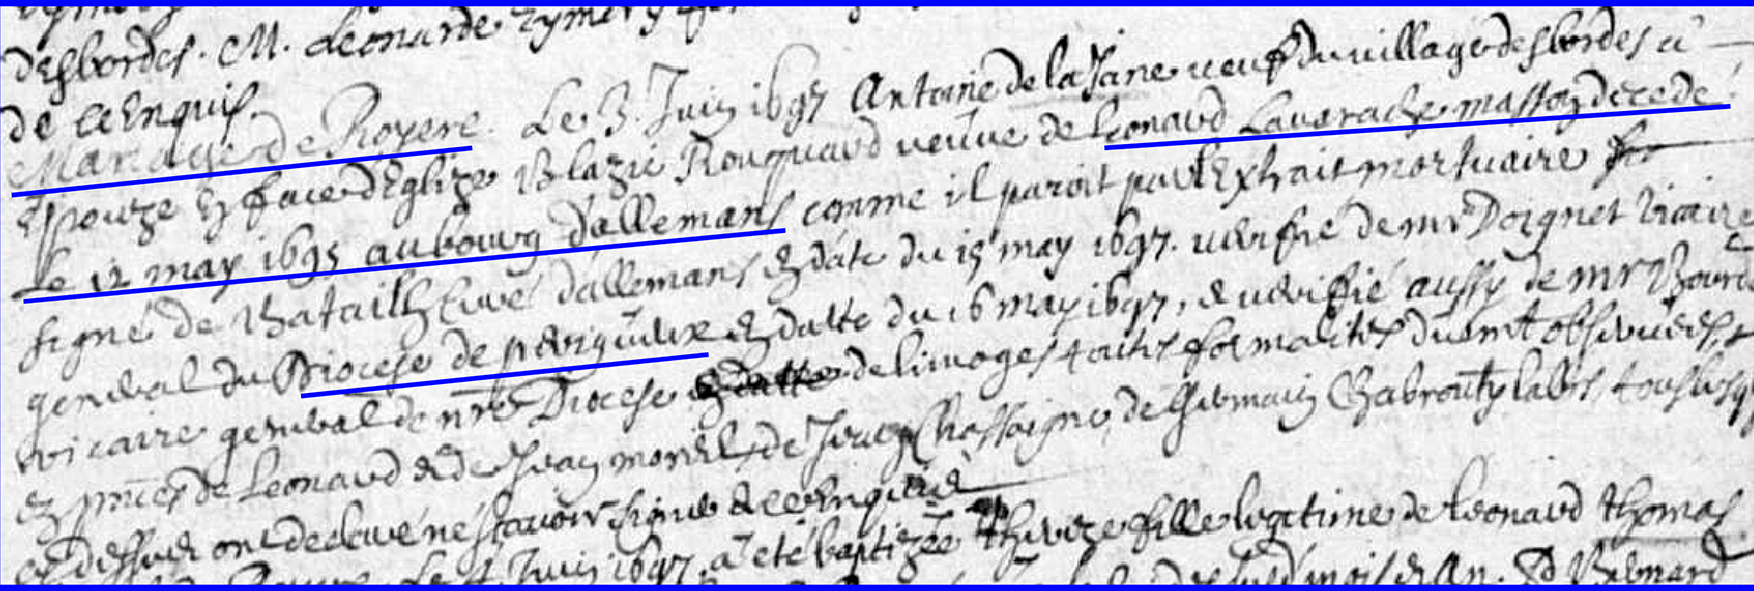 desbordes. M. Leonarde
de ce enquis.
Mariage de Royere. Le 3. Juin 1697 Antoine de la Jane veuf du village desbordes a
Epouze en face d'Eglize Blazie Rouquaud veuve de Leonard Laverache masson decede
Le 12 may 1695 au bourg d'allemans comme il paroit par l'Extrait mortuaire
signé de Batailh Curé d'allemans en date du 15 may 1697. verifié de mr Doignet Vicaire
general du Diocese de perigueux en datte du 16 may 1697, & verifié aussy de mr
vicaire general de nre Diocese de limoges formalites duemt observees,
en pnces de Leonard & de Jean morel, de Jean Chassaigne, de Germain tous lesq
cy dessus ont declaré ne scavoir signer de ce enquis
Le 4 Juin 1697 a été baptizée Thereze fille legitime de Leonard thomas
Bernard